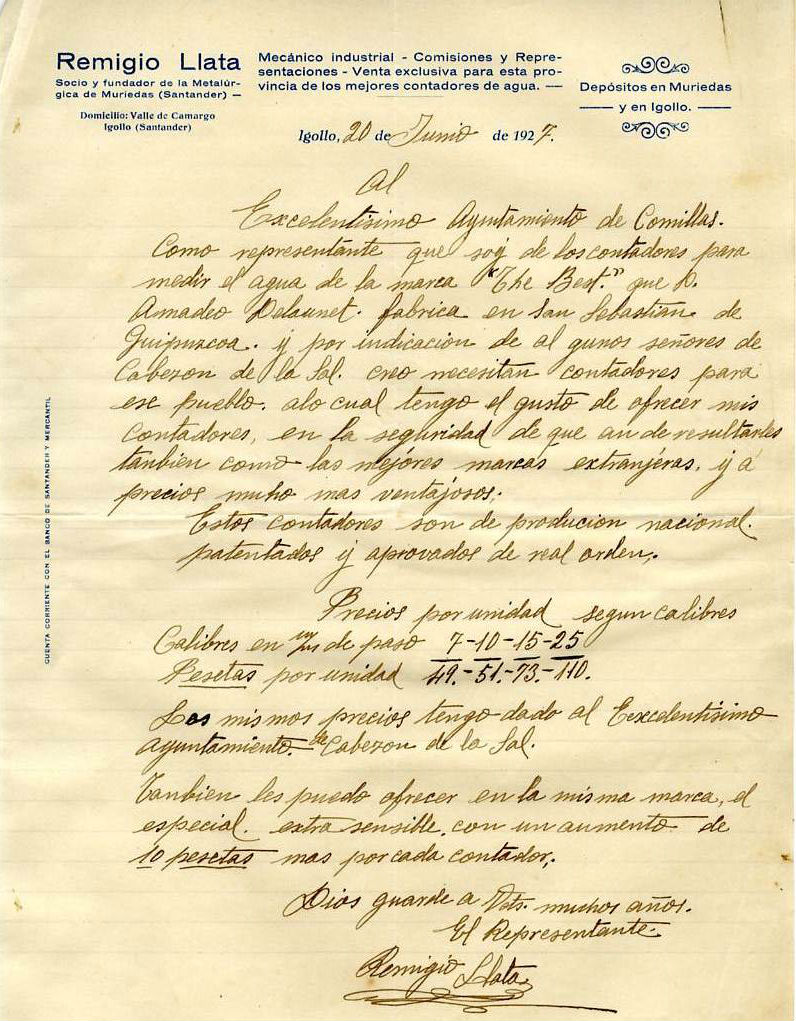 Remigio Llata
Socio y fundador de la Metalúr-
gica de Muriedas (Santander) —
Domicilio: Valle de Camargo
Igollo (Santander)
Mecánico industrial - Comisiones y Repre-
sentaciones - Venta exclusiva para esta pro-
vincia de los mejores contadores de agua. —
Depósitos en Muriedas
— y en Igollo. —
Igollo, 20 de Junio de 1927.
Al
Excelentisimo Ayuntamiento de Comillas.
Como representante que soy de los contadores para
medir el agua de la marca "The Best." que D.
Amadeo Delaunet. fabrica en San Sebastian. de
Guipuzcoa. y por indicacion de al gunos señores de
Cabezon de la Sal. creo necesitan contadores para
ese pueblo. alo cual tengo el gusto de ofrecer mis
contadores, en la seguridad de que an de resultarles
tanbien como las mejores marcas extranjeras, y á
precios muho mas ventajosos.
Estos contadores son de producion nacional.
patentados y aprovados de real orden.
Precios por unidad segun calibres
Calibres en m/m de paso 7-10-15-25
Pesetas por unidad 49.-51.-73.-110.
Los mismos precios tengo dado al Eexcelentisimo
Ayuntamiento. de Cabezon de la Sal.
Tanbien les puedo ofrecer en la misma marca, el
especial. extra sensible. con un aumento de
10 pesetas mas por cada contador.
Dios guarde a Vds. muchos años.
El Representante.
Remigio Llata
CUENTA CORRIENTE CON EL BANCO DE SANTANDER Y MERCANTIL